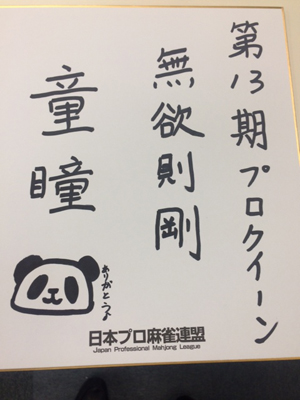 第13期プロクイーン
無欲則剛
童瞳
ありがとう♪
日本プロ麻雀連盟
Japan Professional Mahjong League